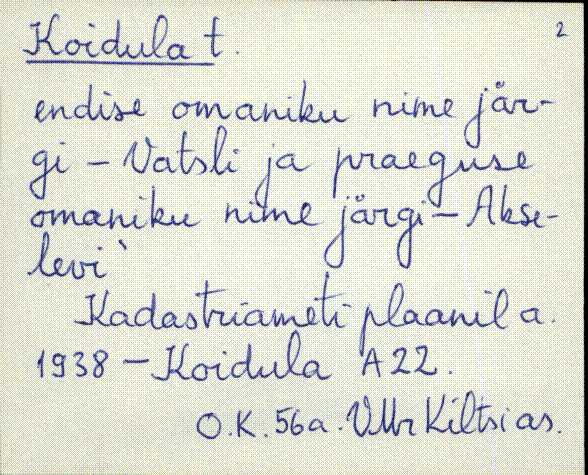 Koidula t. 2
endise omaniku nime jär-
gi – Vatsli ja praeguse
omaniku nime järgi – Akse-
levi`
Kadastriameti plaanil a.
1938 – Koidula A22.
O.K. 56a. VMr Kiltsi as.